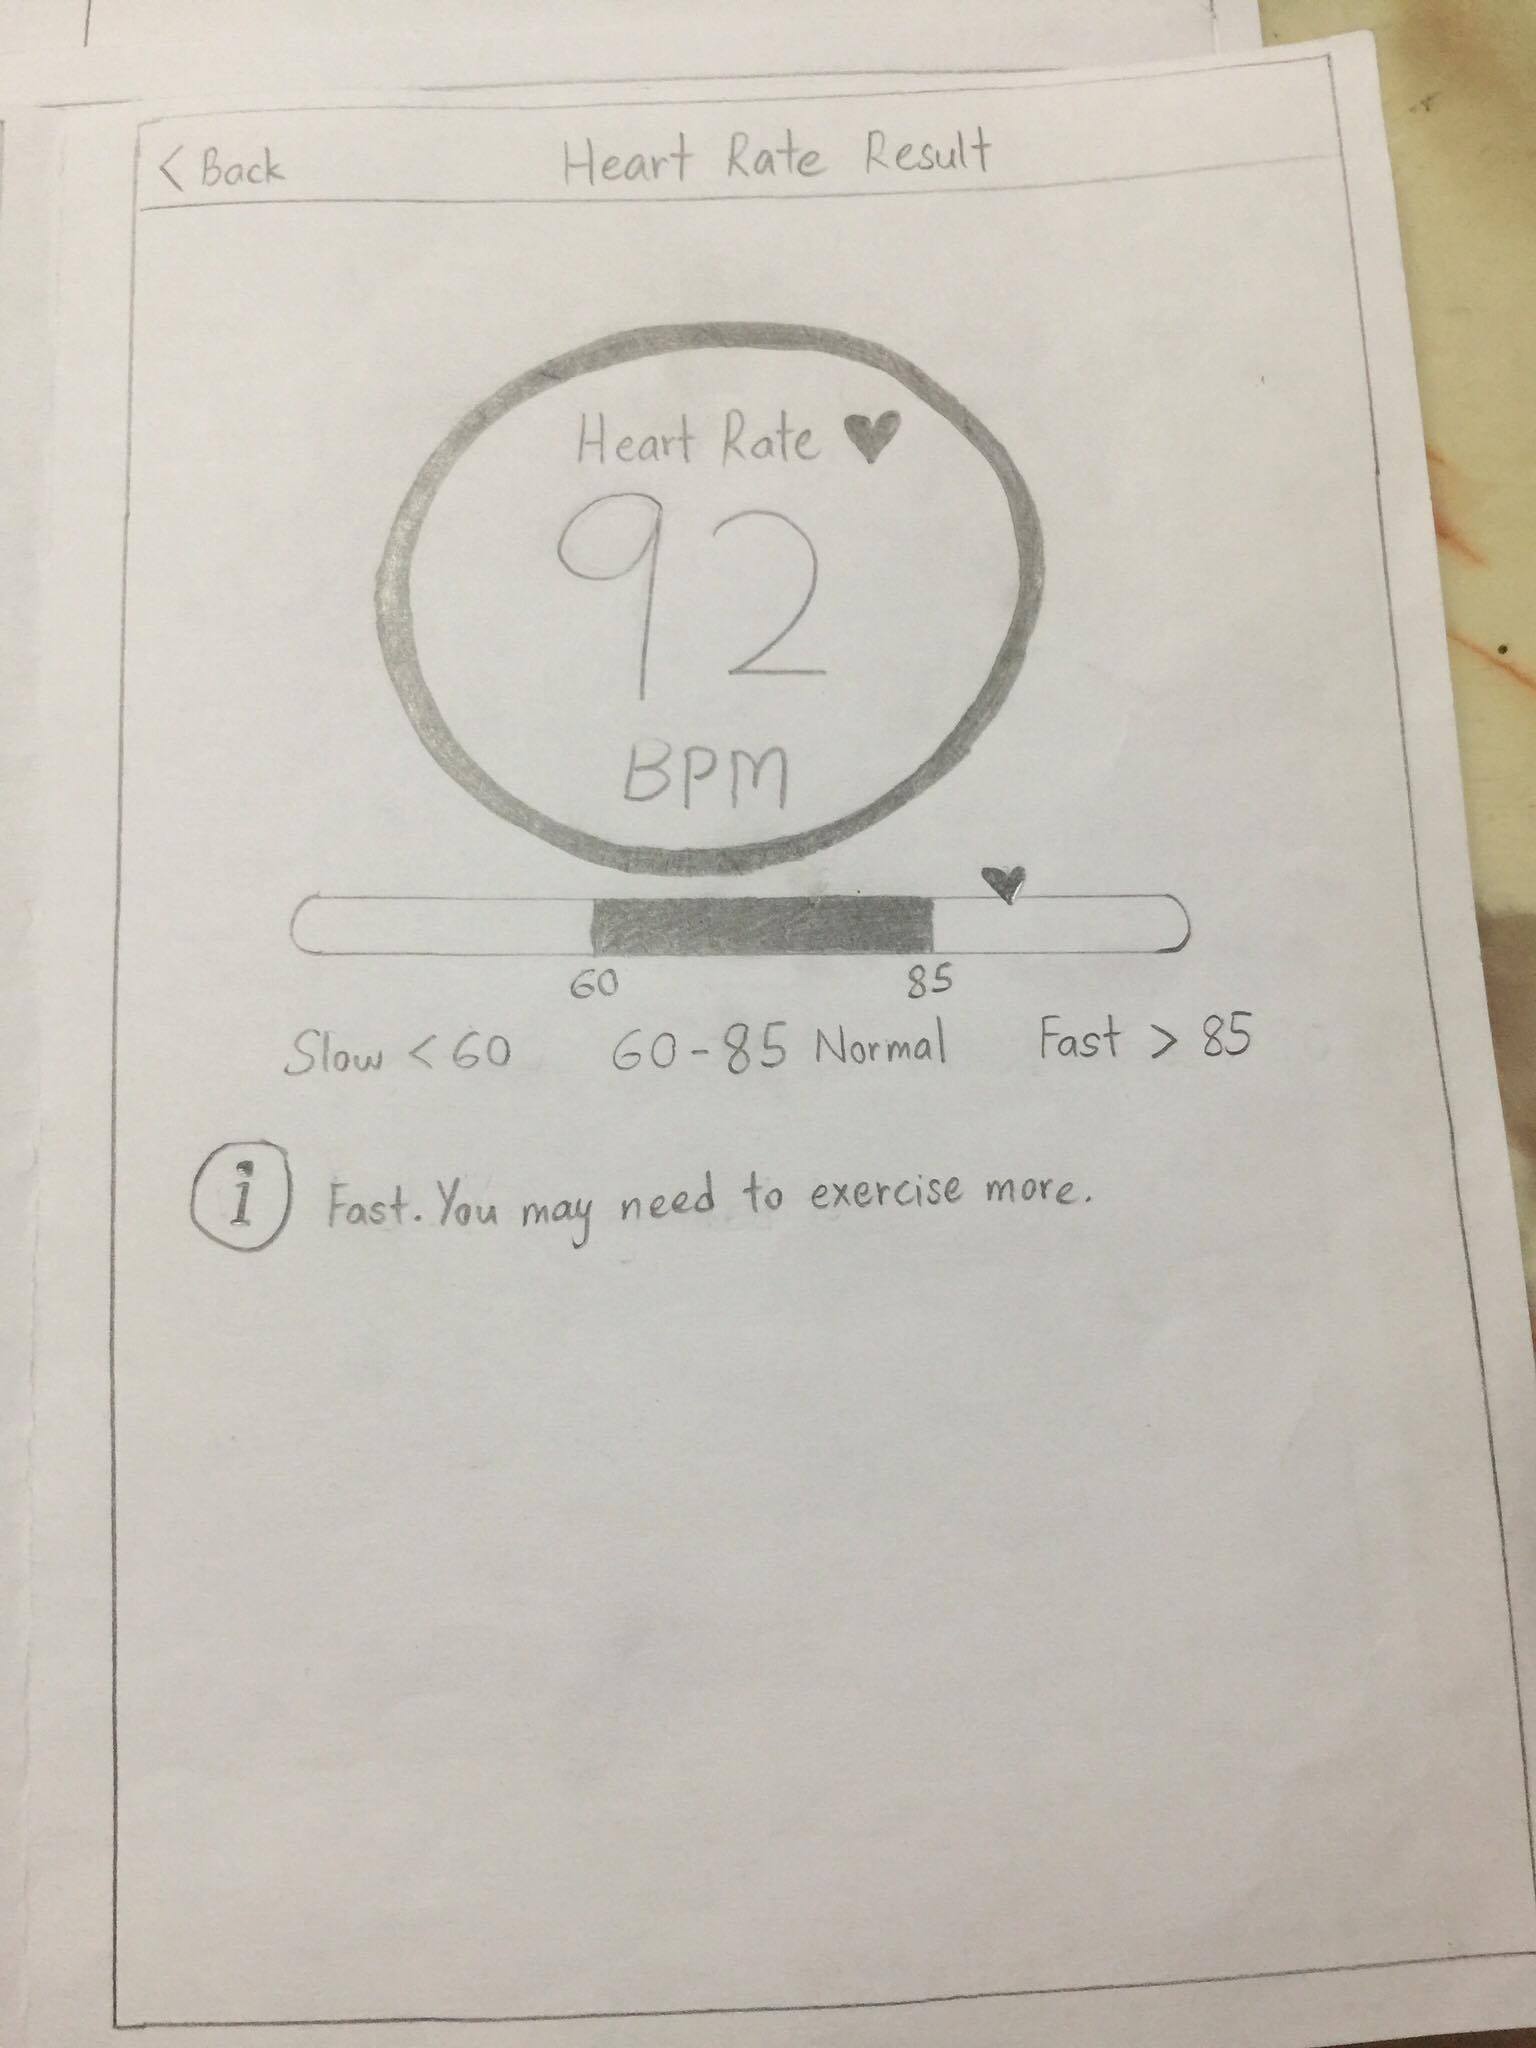 < Back Heart Rate Result
Heart Rate ♥
92
BPM
60 85
Slow < 60 60-85 Normal Fast > 85
i Fast. You may need to exercise more.